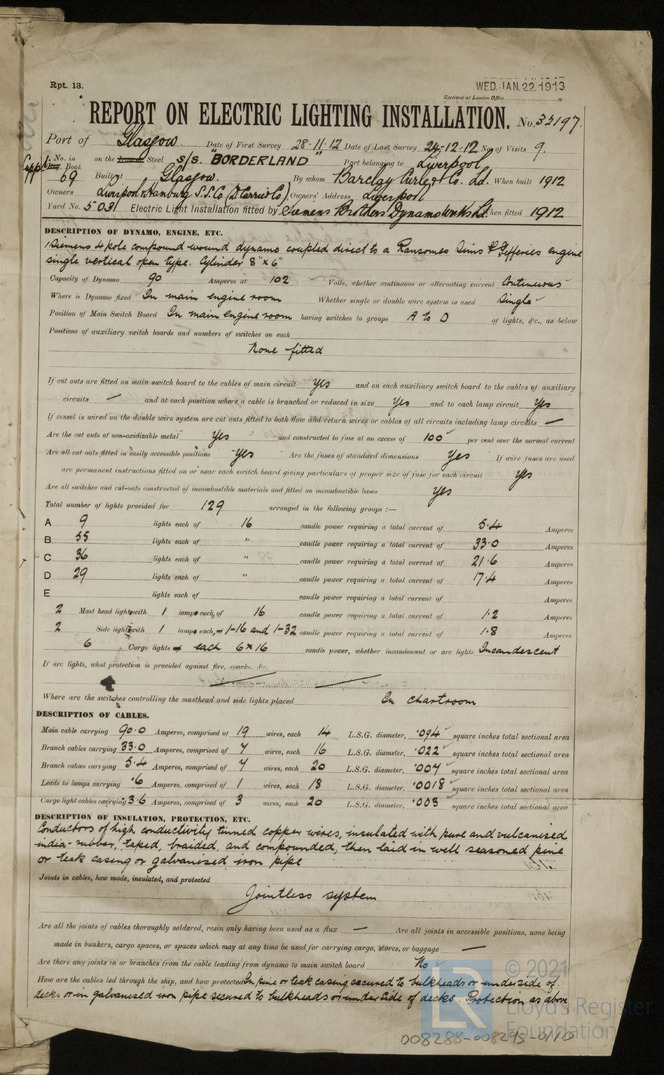 Rpt. 13.
WED. JAN. 22. 1913
Received at London Office
REPORT ON ELECTRIC LIGHTING INSTALLATION. No. 33197.
Port of Glasgow Date of First Survey 28·11·12 Date of Last Survey 24·12·12 No. of Visits 9.
No. in on the Iron or Steel S/S. "BORDERLAND" Port belonging to Liverpool
Reg. Book
69 Built at Glasgow. By whom Barclay Curle & Co. Ld. When built 1912
Owners Liverpool & Hamburg S.S. Co (D Currie & Co) Owners' Address Liverpool
Yard No. 503 Electric Light Installation fitted by Siemens Brothers Dynamo Works Ld. When fitted 1912
DESCRIPTION OF DYNAMO, ENGINE, ETC.
1 Siemens 4 pole compound wound dynamo coupled direct to a Ransomes Sims & Jefferies engine
single vertical open type. Cylinder 8" x 6"
Capacity of Dynamo 90 Amperes at 102 Volts, whether continuous or alternating current Continuous
Where is Dynamo fixed In main engine room Whether single or double wire system is used Single
Position of Main Switch Board In main engine room having switches to groups A to D of lights, &c., as below
Positions of auxiliary switch boards and numbers of switches on each
None fitted
If cut outs are fitted on main switch board to the cables of main circuit Yes and on each auxiliary switch board to the cables of auxiliary
circuits — and at each position where a cable is branched or reduced in size Yes and to each lamp circuit Yes
If vessel is wired on the double wire system are cut outs fitted to both flow and return wires or cables of all circuits including lamp circuits —
Are the cut outs of non-oxidizable metal Yes and constructed to fuse at an excess of 100 per cent over the normal current
Are all cut outs fitted in easily accessible positions Yes Are the fuses of standard dimensions Yes If wire fuses are used
are permanent instructions fitted on or near each switch board giving particulars of proper size of fuse for each circuit Yes
Are all switches and cut-outs constructed of incombustible materials and fitted on incombustible bases Yes
Total number of lights provided for 129 arranged in the following groups :—
A 9 lights each of 16 candle power requiring a total current of 5·4 Amperes
B 55 lights each of " candle power requiring a total current of 33·0 Amperes
C 36 lights each of " candle power requiring a total current of 21·6 Amperes
D 29 lights each of " candle power requiring a total current of 17·4 Amperes
E lights each of candle power requiring a total current of Amperes
2 Mast head light with 1 lamps each of 16 candle power requiring a total current of 1·2 Amperes
2 Side light with 1 lamps each of 1-16 and 1-32 candle power requiring a total current of 1·8 Amperes
6 Cargo lights of each 6 x 16 candle power, whether incandescent or arc lights Incandescent
If arc lights, what protection is provided against fire, sparks, &c.
Where are the switches controlling the masthead and side lights placed In Chartroom
DESCRIPTION OF CABLES.
Main cable carrying 90·0 Amperes, comprised of 19 wires, each 14 L.S.G. diameter, ·094 square inches total sectional area
Branch cables carrying 33·0 Amperes, comprised of 7 wires, each 16 L.S.G. diameter, ·022 square inches total sectional area
Branch cables carrying 5·4 Amperes, comprised of 7 wires, each 20 L.S.G. diameter, ·007 square inches total sectional area
Leads to lamps carrying ·6 Amperes, comprised of 1 wires, each 18 L.S.G. diameter, ·0018 square inches total sectional area
Cargo light cables carrying 3·6 Amperes, comprised of 3 wires, each 20 L.S.G. diameter, ·003 square inches total sectional area
DESCRIPTION OF INSULATION, PROTECTION, ETC.
Conductors of high conductivity tinned copper wires, insulated with pure and vulcanised
india-rubber, taped, braided, and compounded, then laid in well seasoned pine
or teak casing or galvanised iron pipe
Joints in cables, how made, insulated, and protected
Jointless system
Are all the joints of cables thoroughly soldered, resin only having been used as a flux — Are all joints in accessible positions, none being
made in bunkers, cargo spaces, or spaces which may at any time be used for carrying cargo, stores, or baggage —
Are there any joints in or branches from the cable leading from dynamo to main switch board No
How are the cables led through the ship, and how protected In pine or teak casing secured to bulkheads or underside of
decks or in galvanised iron pipe secured to bulkheads or underside of decks. Protection as above
© 2021
Lloyd's Register
Foundation
008288-008295-0110